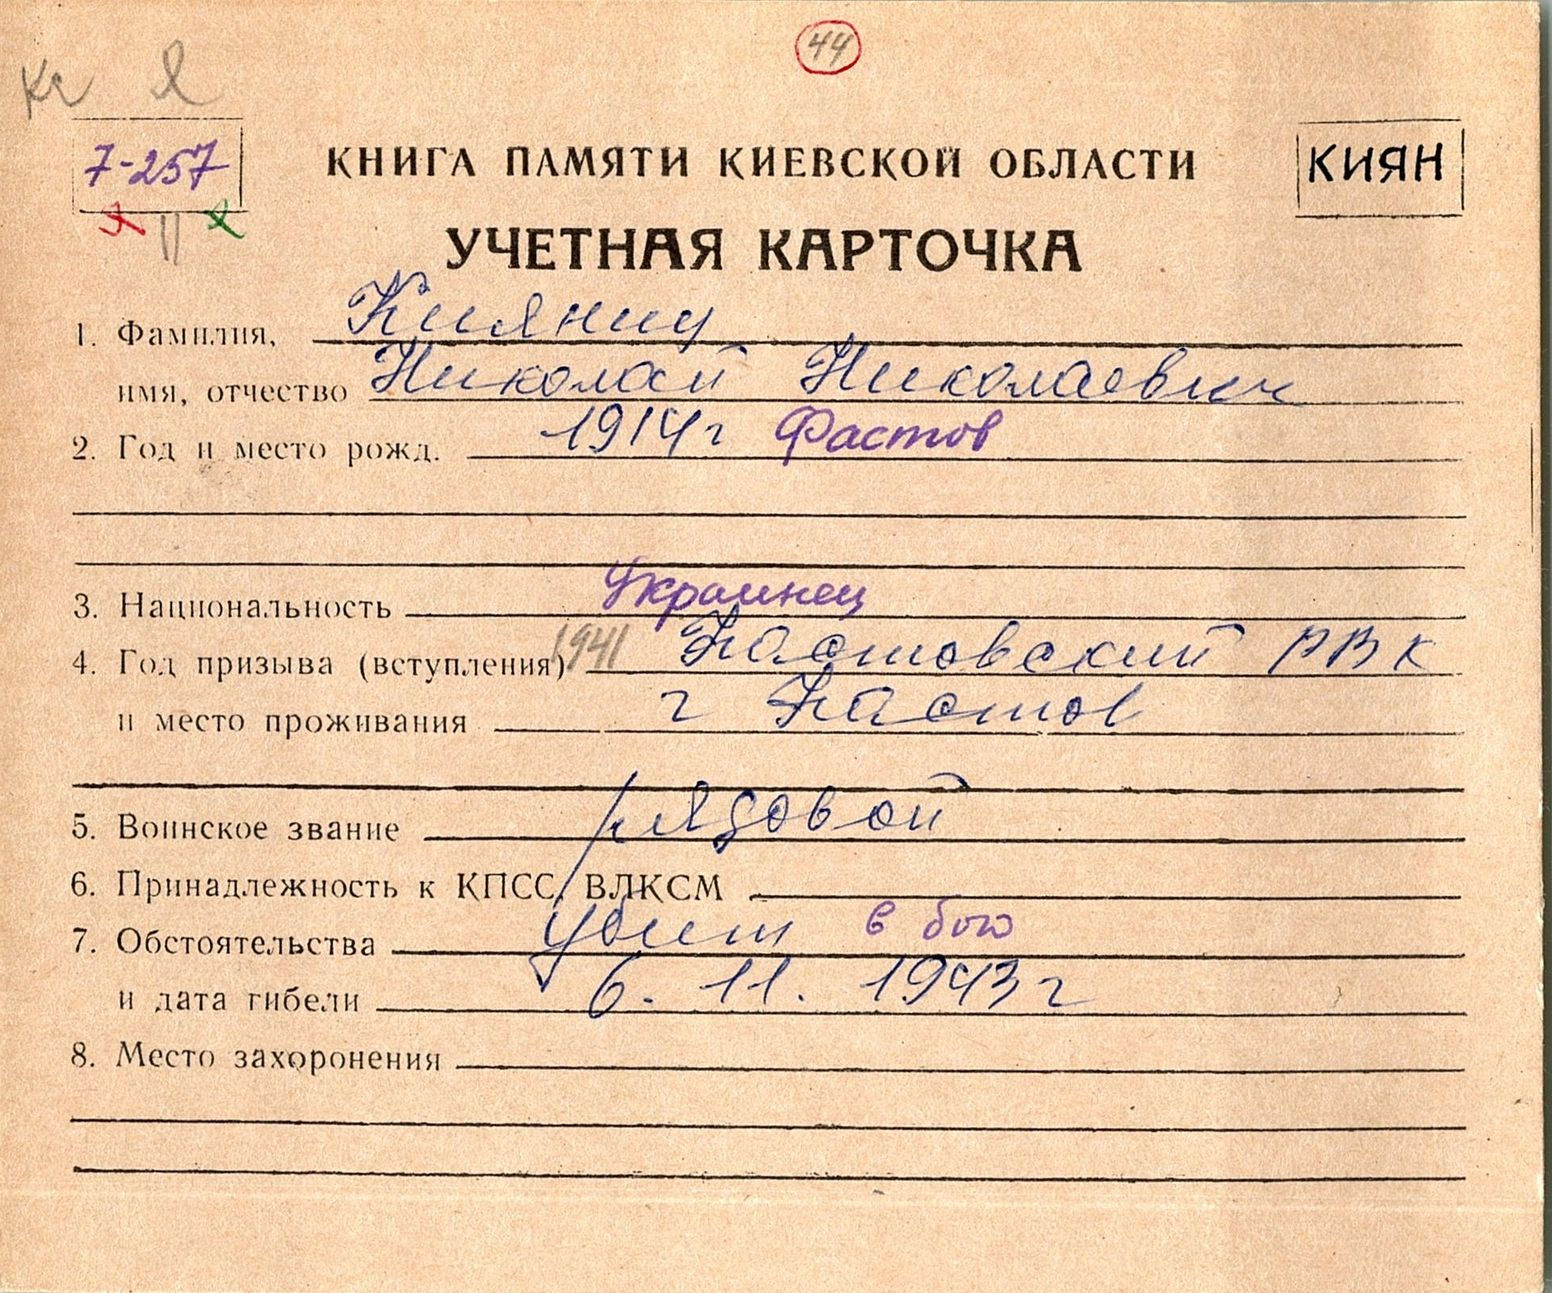 44
7-257
КНИГА ПАМЯТИ КИЕВСКОЙ ОБЛАСТИ
КИЯН
УЧЕТНАЯ КАРТОЧКА
1. Фамилия, Кияниц
имя, отчество Николай Николаевич
2. Год и место рожд. 1914г Фастов
3. Национальность Украинец
4. Год призыва (вступления) 1941 Фастовский РВК
и место проживания г Фастов
5. Воинское звание рядовой
6. Принадлежность к КПСС, ВЛКСМ
7. Обстоятельства убит в бою
и дата гибели 6. 11. 1943г
8. Место захоронения